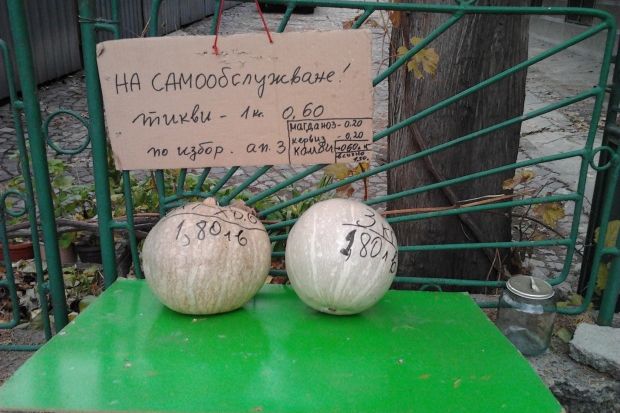 НА САМООБСЛУЖВАНЕ!
тикви - 1 кг. 0,60
по избор. ап. 3
МАГДАНОЗ - 0.20
кервиз - 0,20
1,80 лв
3 кг
1,80 лв